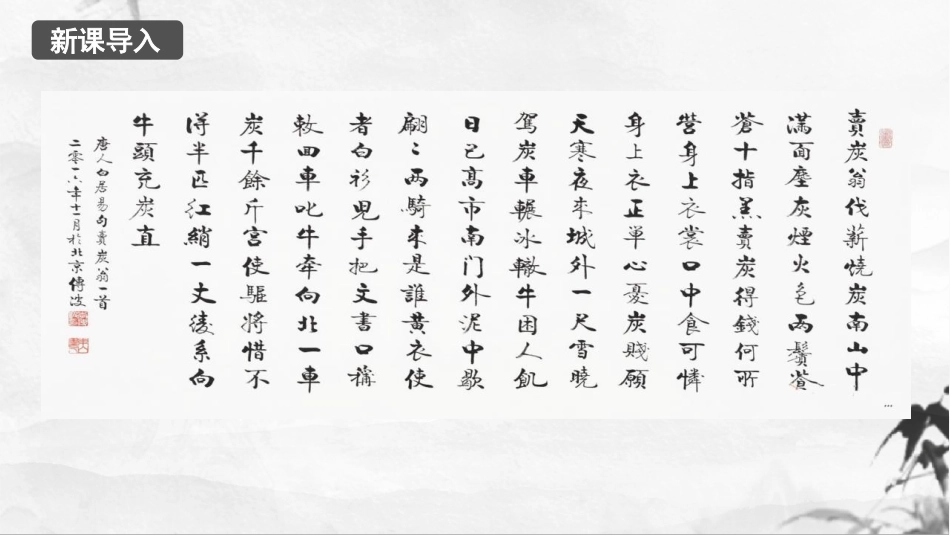 新课导入
賣炭翁伐薪燒炭南山中
滿面塵灰煙火色兩鬢蒼
蒼十指黑賣炭得錢何所
營身上衣裳口中食可憐
身上衣正単心憂炭賤願
天寒夜来城外一尺雪曉
駕炭車輾冰轍牛困人飢
日已高市南门外泥中歇
翩〻兩騎來是誰黄衣使
者白衫児手把文書口稱
敕回車叱牛牽向北一車
炭千餘斤宮使驅將惜不
得半匹红綃一丈绫系向
牛頭充炭直
唐人白居易句賣炭翁一首
二零一六年十一月於北京傅波
...